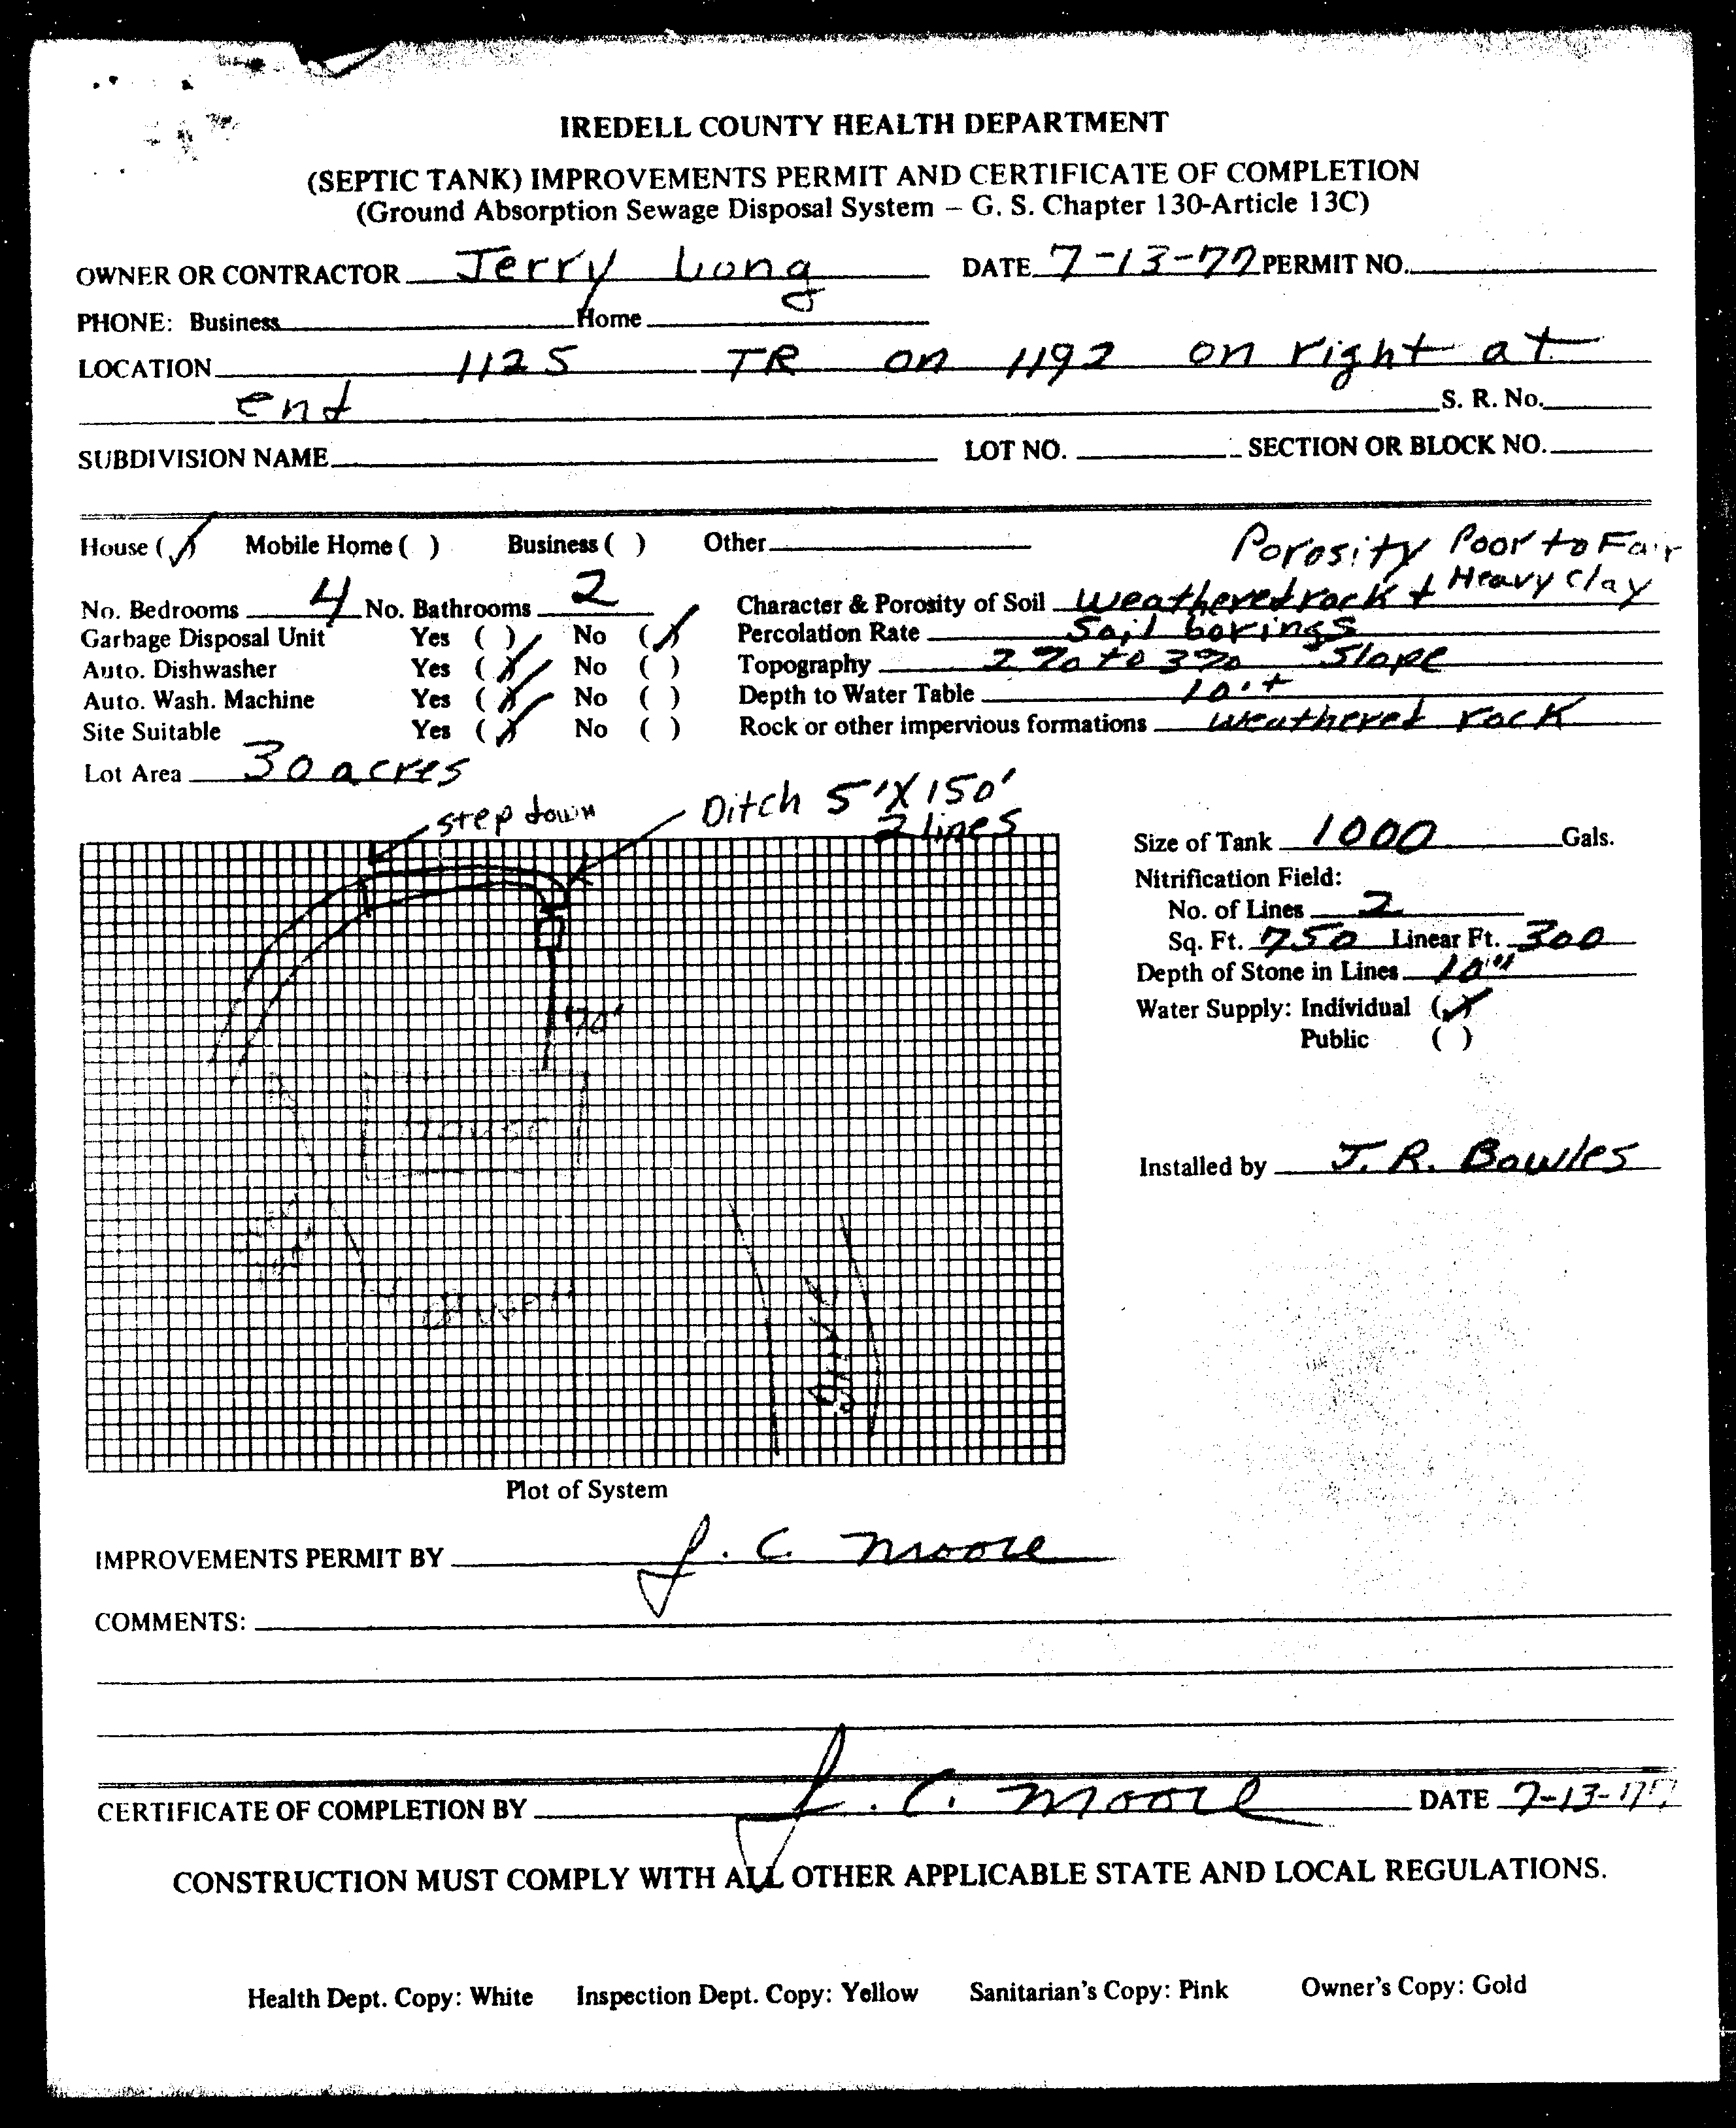 IREDELL COUNTY HEALTH DEPARTMENT
(SEPTIC TANK) IMPROVEMENTS PERMIT AND CERTIFICATE OF COMPLETION
(Ground Absorption Sewage Disposal System – G. S. Chapter 130-Article 13C)
OWNER OR CONTRACTOR Jerry Long DATE 7-13-77 PERMIT NO.
PHONE: Business Home
LOCATION 1125 TR on 1192 on right at
end S. R. No.
SUBDIVISION NAME LOT NO. SECTION OR BLOCK NO.
House (✓) Mobile Home ( ) Business ( ) Other
Porosity Poor to Fair
No. Bedrooms 4 No. Bathrooms 2
Character & Porosity of Soil Weathered rock + Heavy Clay
Garbage Disposal Unit Yes ( ) No (✓)
Percolation Rate Soil borings
Auto. Dishwasher Yes (✓) No ( )
Topography 2% to 3% Slope
Auto. Wash. Machine Yes (✓) No ( )
Depth to Water Table 10'+
Site Suitable Yes (✓) No ( )
Rock or other impervious formations weathered rock
Lot Area 30 acres
step down
Ditch 5'X150'
2 lines
70'
House
Well
Drive
Plot of System
Size of Tank 1000 Gals.
Nitrification Field:
No. of Lines 2
Sq. Ft. 750 Linear Ft. 300
Depth of Stone in Lines 10"
Water Supply: Individual (✓)
Public ( )
Installed by J. R. Bowles
IMPROVEMENTS PERMIT BY J. C. Moore
COMMENTS:
CERTIFICATE OF COMPLETION BY J. C. Moore DATE 7-13-77
CONSTRUCTION MUST COMPLY WITH ALL OTHER APPLICABLE STATE AND LOCAL REGULATIONS.
Health Dept. Copy: White Inspection Dept. Copy: Yellow Sanitarian's Copy: Pink Owner's Copy: Gold